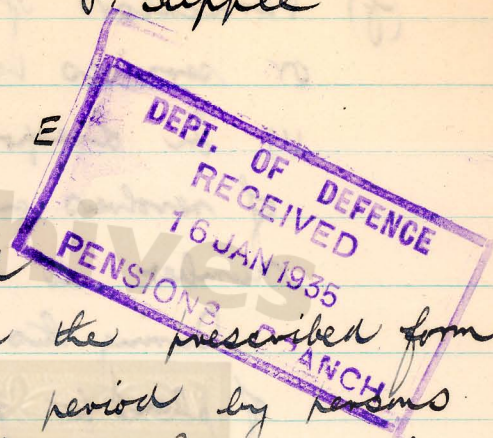 E
DEPT. OF DEFENCE
RECEIVED
16 JAN 1935
PENSIONS BRANCH
the prescribed form
period by persons